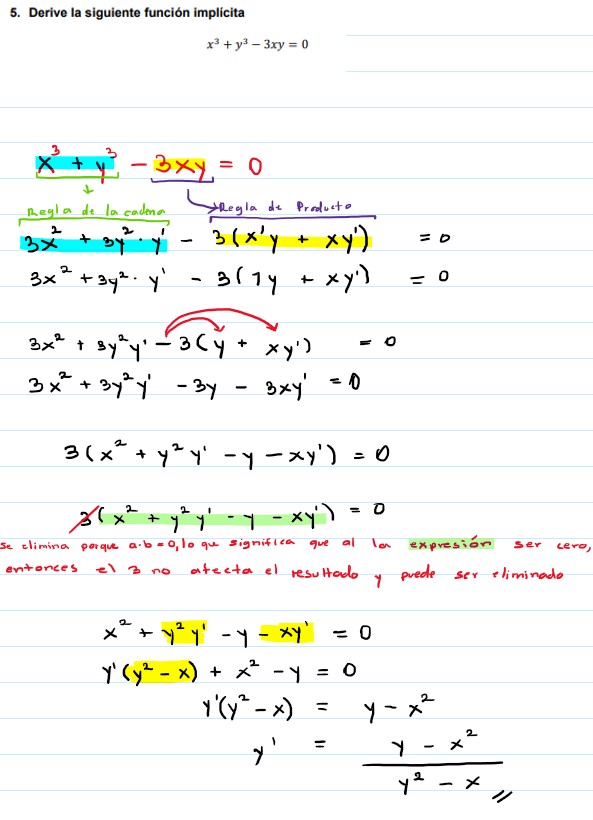 5. Derive la siguiente función implícita
x³ + y³ − 3xy = 0
x³ + y³ − 3xy = 0
Regla de la cadena Regla de Producto
3x² + 3y² · y' − 3(x'y + xy') = 0
3x² + 3y² · y' − 3(1y + xy') = 0
3x² + 3y²y' − 3(y + xy') = 0
3x² + 3y²y' − 3y − 3xy' = 0
3(x² + y²y' − y − xy') = 0
3(x² + y²y' − y − xy') = 0
Se elimina porque a·b=0, lo que significa que al la expresión ser cero,
entonces el 3 no afecta el resultado y puede ser eliminado
x² + y²y' − y − xy' = 0
y'(y² − x) + x² − y = 0
y'(y² − x) = y − x²
y' = y − x²
y² − x //